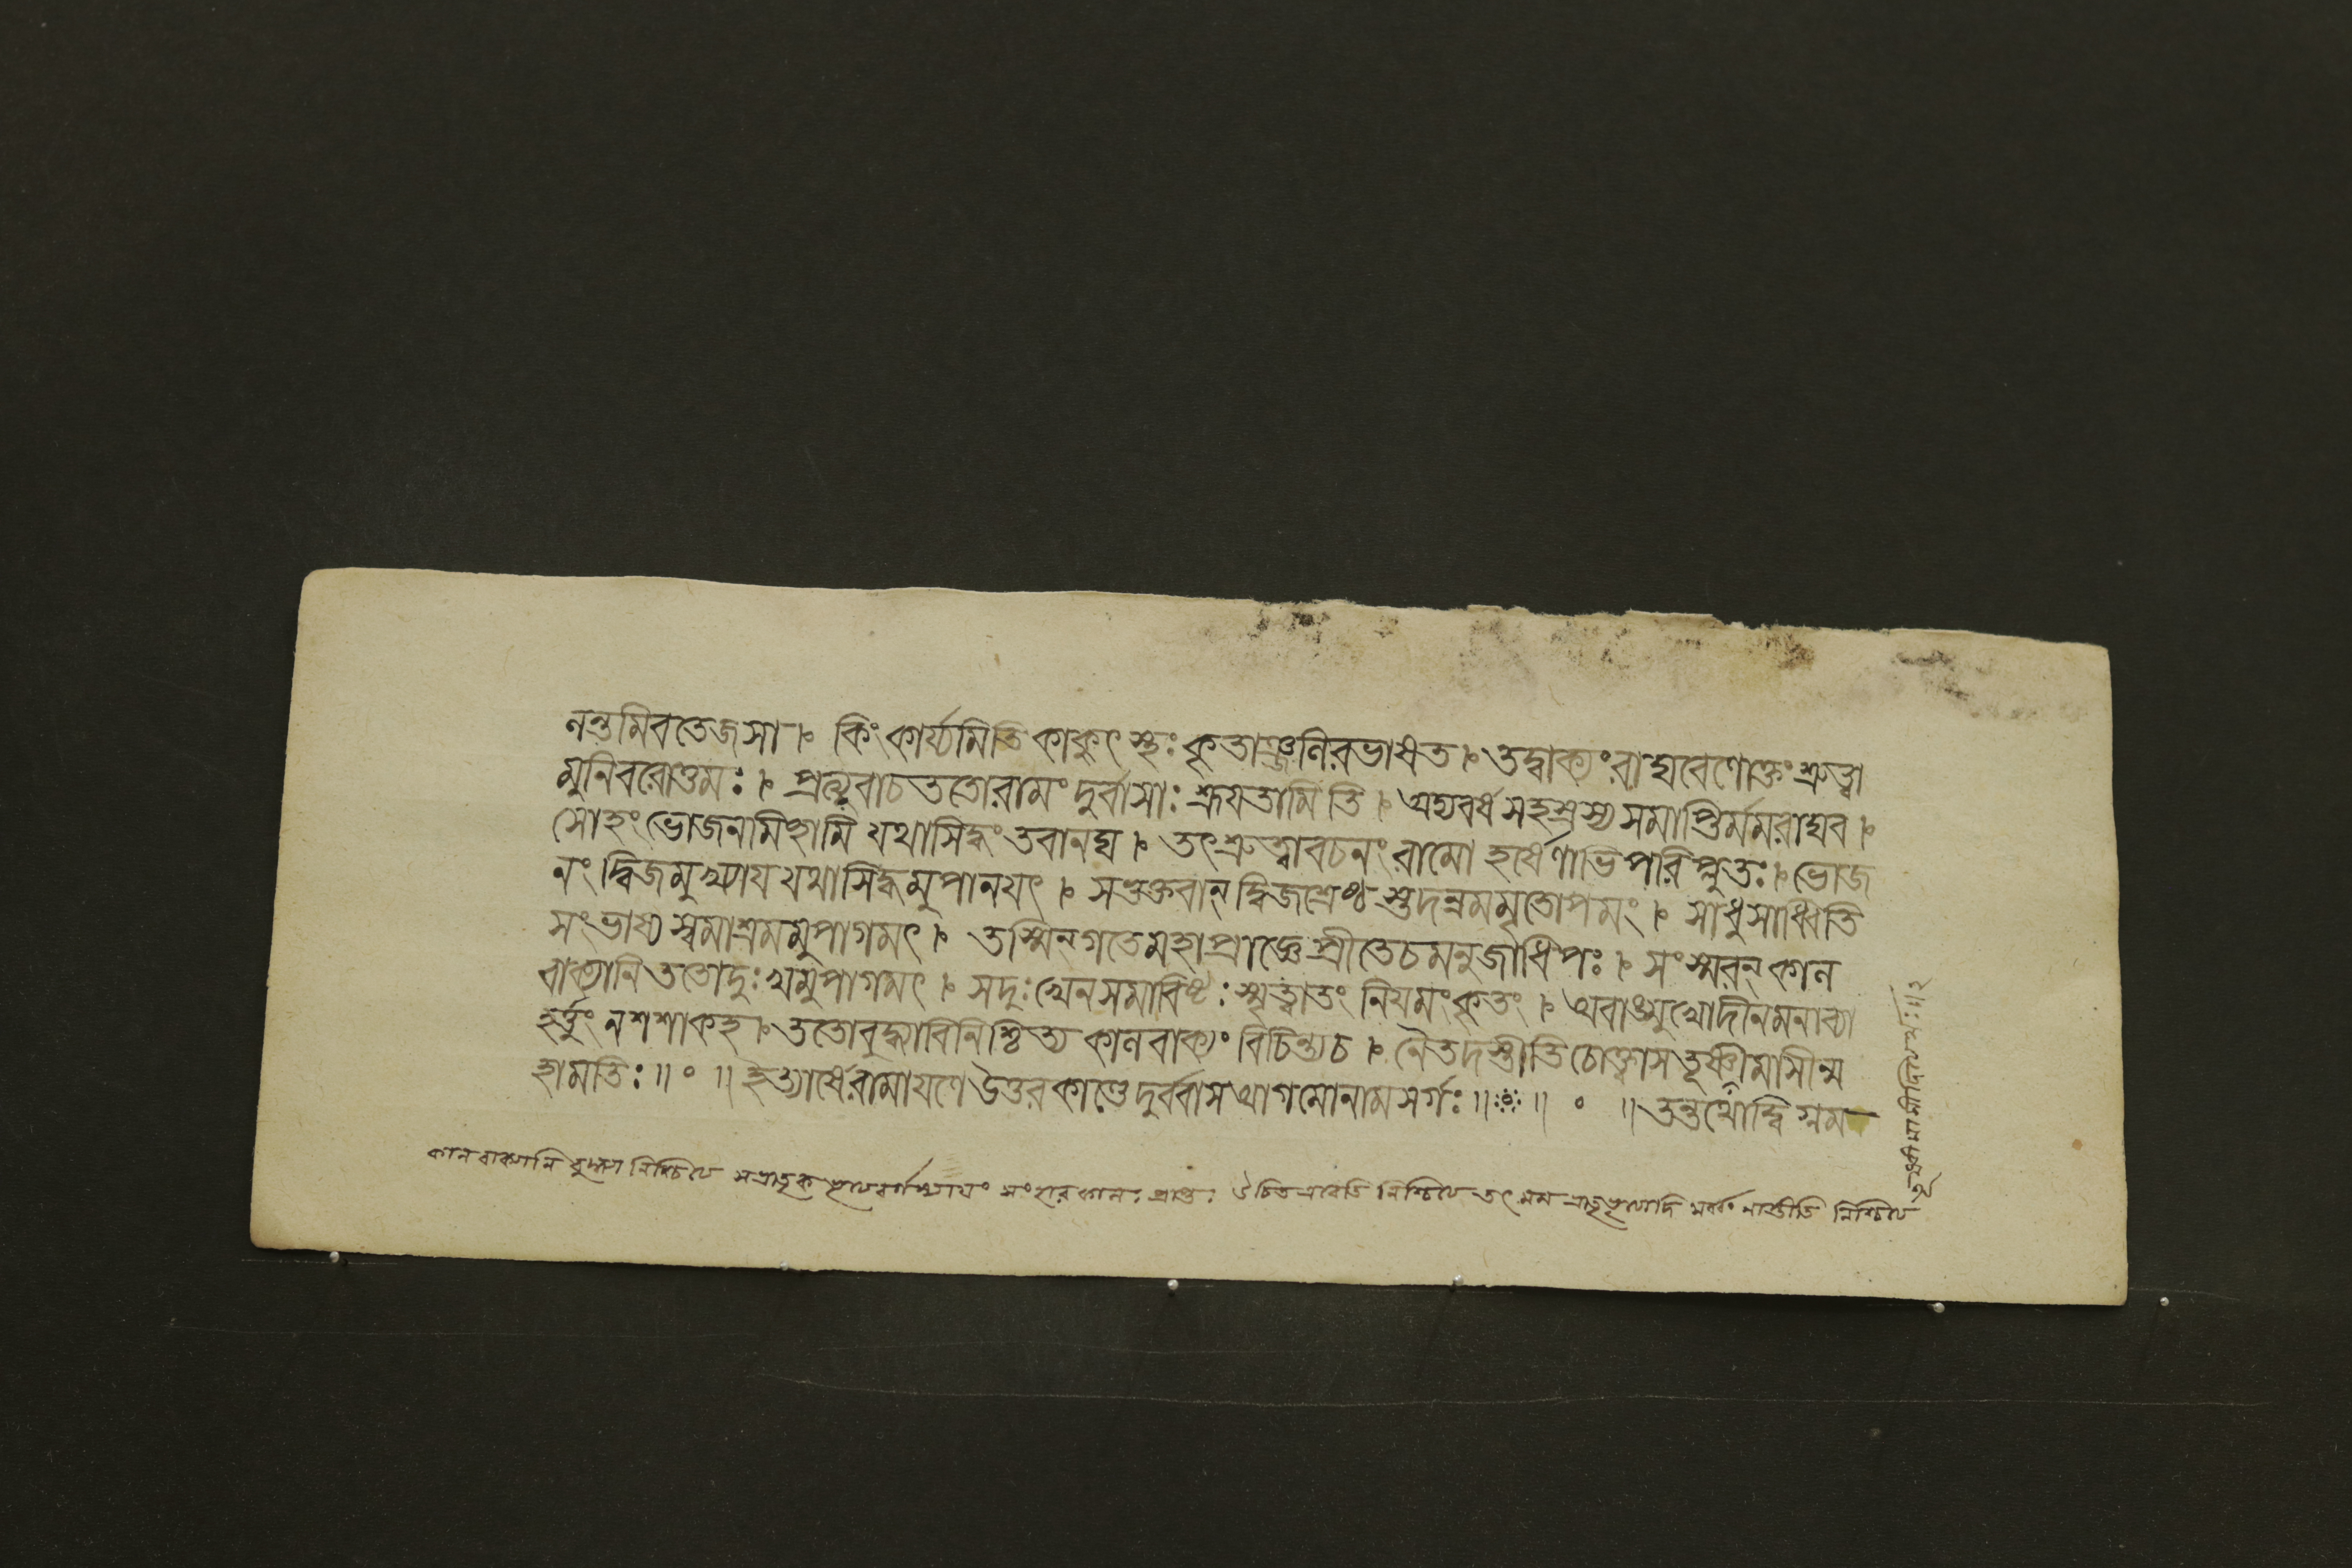 নন্তমিবতেজসা । কিংকার্য্যমিতিকাকুৎস্থঃকৃতাঞ্জলিরভাষত । তদ্বাক্যংরাঘবেণোক্তংশ্রুত্বা
মুনিবরোত্তমঃ । প্রত্যুবাচততোরামংদুর্বাসাঃশ্রূযতামিতি । অদ্যবর্ষসহস্রস্যসমাপ্তির্মমরাঘব ।
সোহংভোজনমিচ্ছামি যথাসিদ্ধংতবানঘ । তৎশ্রুত্বাবচনংরামো হর্ষেণাভিপরিপ্লুতঃ । ভোজ
নংদ্বিজমুখ্যাযযথাসিদ্ধমুপানযৎ । সতুভুক্তবান্দ্বিজশ্রেষ্ঠস্তদন্নমমৃতোপমং । সাধুসাধ্বিতি
সংভাষ্যস্বমাশ্রমমুপাগমৎ । তস্মিন্গতেমহাপ্রাজ্ঞেপ্রীতেচমনুজাধিপঃ । সংস্মরন্কাল
বাক্যানিততোদুঃখমুপাগমৎ । সদুঃখেনসমাবিষ্টঃস্মৃত্বাতং নিযমংকৃতং । অবাঙ্মুখোদীনমনাব্যা
হর্ত্তুংনশশাকহ । ততোবুদ্ধ্যাবিনিশ্চিত্য কালবাক্যং বিচিন্ত্যচ । নৈতদস্তীতিচোক্ত্বাসতূষ্ণীমাসীন্ম
হামতিঃ ॥ ॰ ॥ ইত্যার্ষেরামাযণেউত্তরকাণ্ডেদুর্ব্বাসআগমোনামসর্গঃ ॥ ॥ ॰ ॥ তন্তথোদ্বিগ্নম
কালবাক্যানি বুদ্ধ্যা নিশ্চিত্য সংহারকালঃ প্রাপ্তঃ নিশ্চিত্য তৎ মম নাস্তীতি নিশ্চিত্য